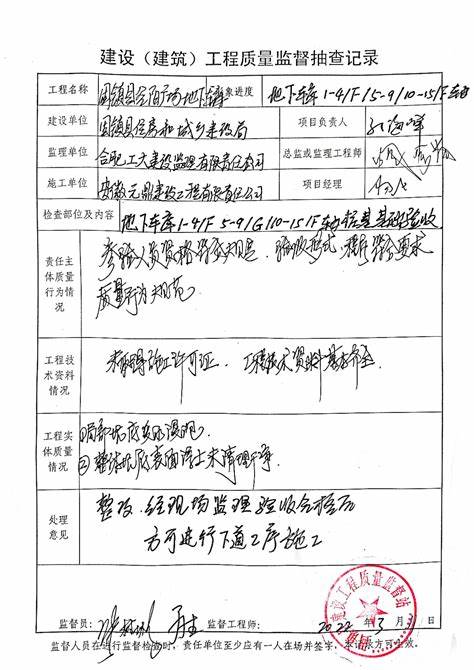 建设（建筑）工程质量监督抽查记录
工程名称 固镇县谷阳广场地下车库 形象进度 地下车库1-4/F 15-9/10-15/F
建设单位 固镇县住房和城乡建设局 项目负责人
监理单位 合肥工大建设监理有限责任公司 总监或监理工程师
施工单位 安徽元鼎建设工程有限责任公司 项目经理
检查部位及内容 地下车库1-4/F 5-9/G 10-15/F 基础验收
责任主体质量行为情况
参验人员资格符合规定、验收程式、程序符合要求
质量行为规范
工程技术资料情况
未取得施工许可证、工程技术资料基本齐全
工程实体质量情况
①局部坑底
②整体坑底表面浮土未清理干净
处理意见
整改、经现场监理验收合格后
方可进行下道工序施工
监督员： 监督工程师： 2022年3月31日
建设工程质量监督站
监督人员在进行监督检查时，责任单位至少应有一人在场并签字，本记录双方可生效。